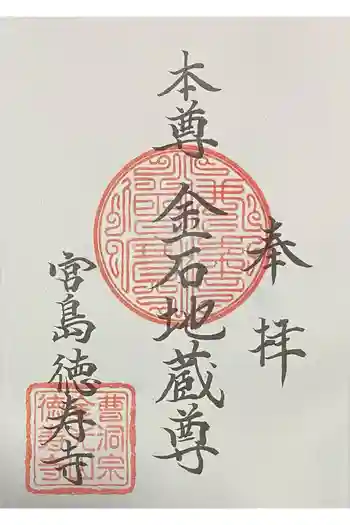 奉拝
本尊 金石地蔵尊
宮島徳寿寺
曹洞宗